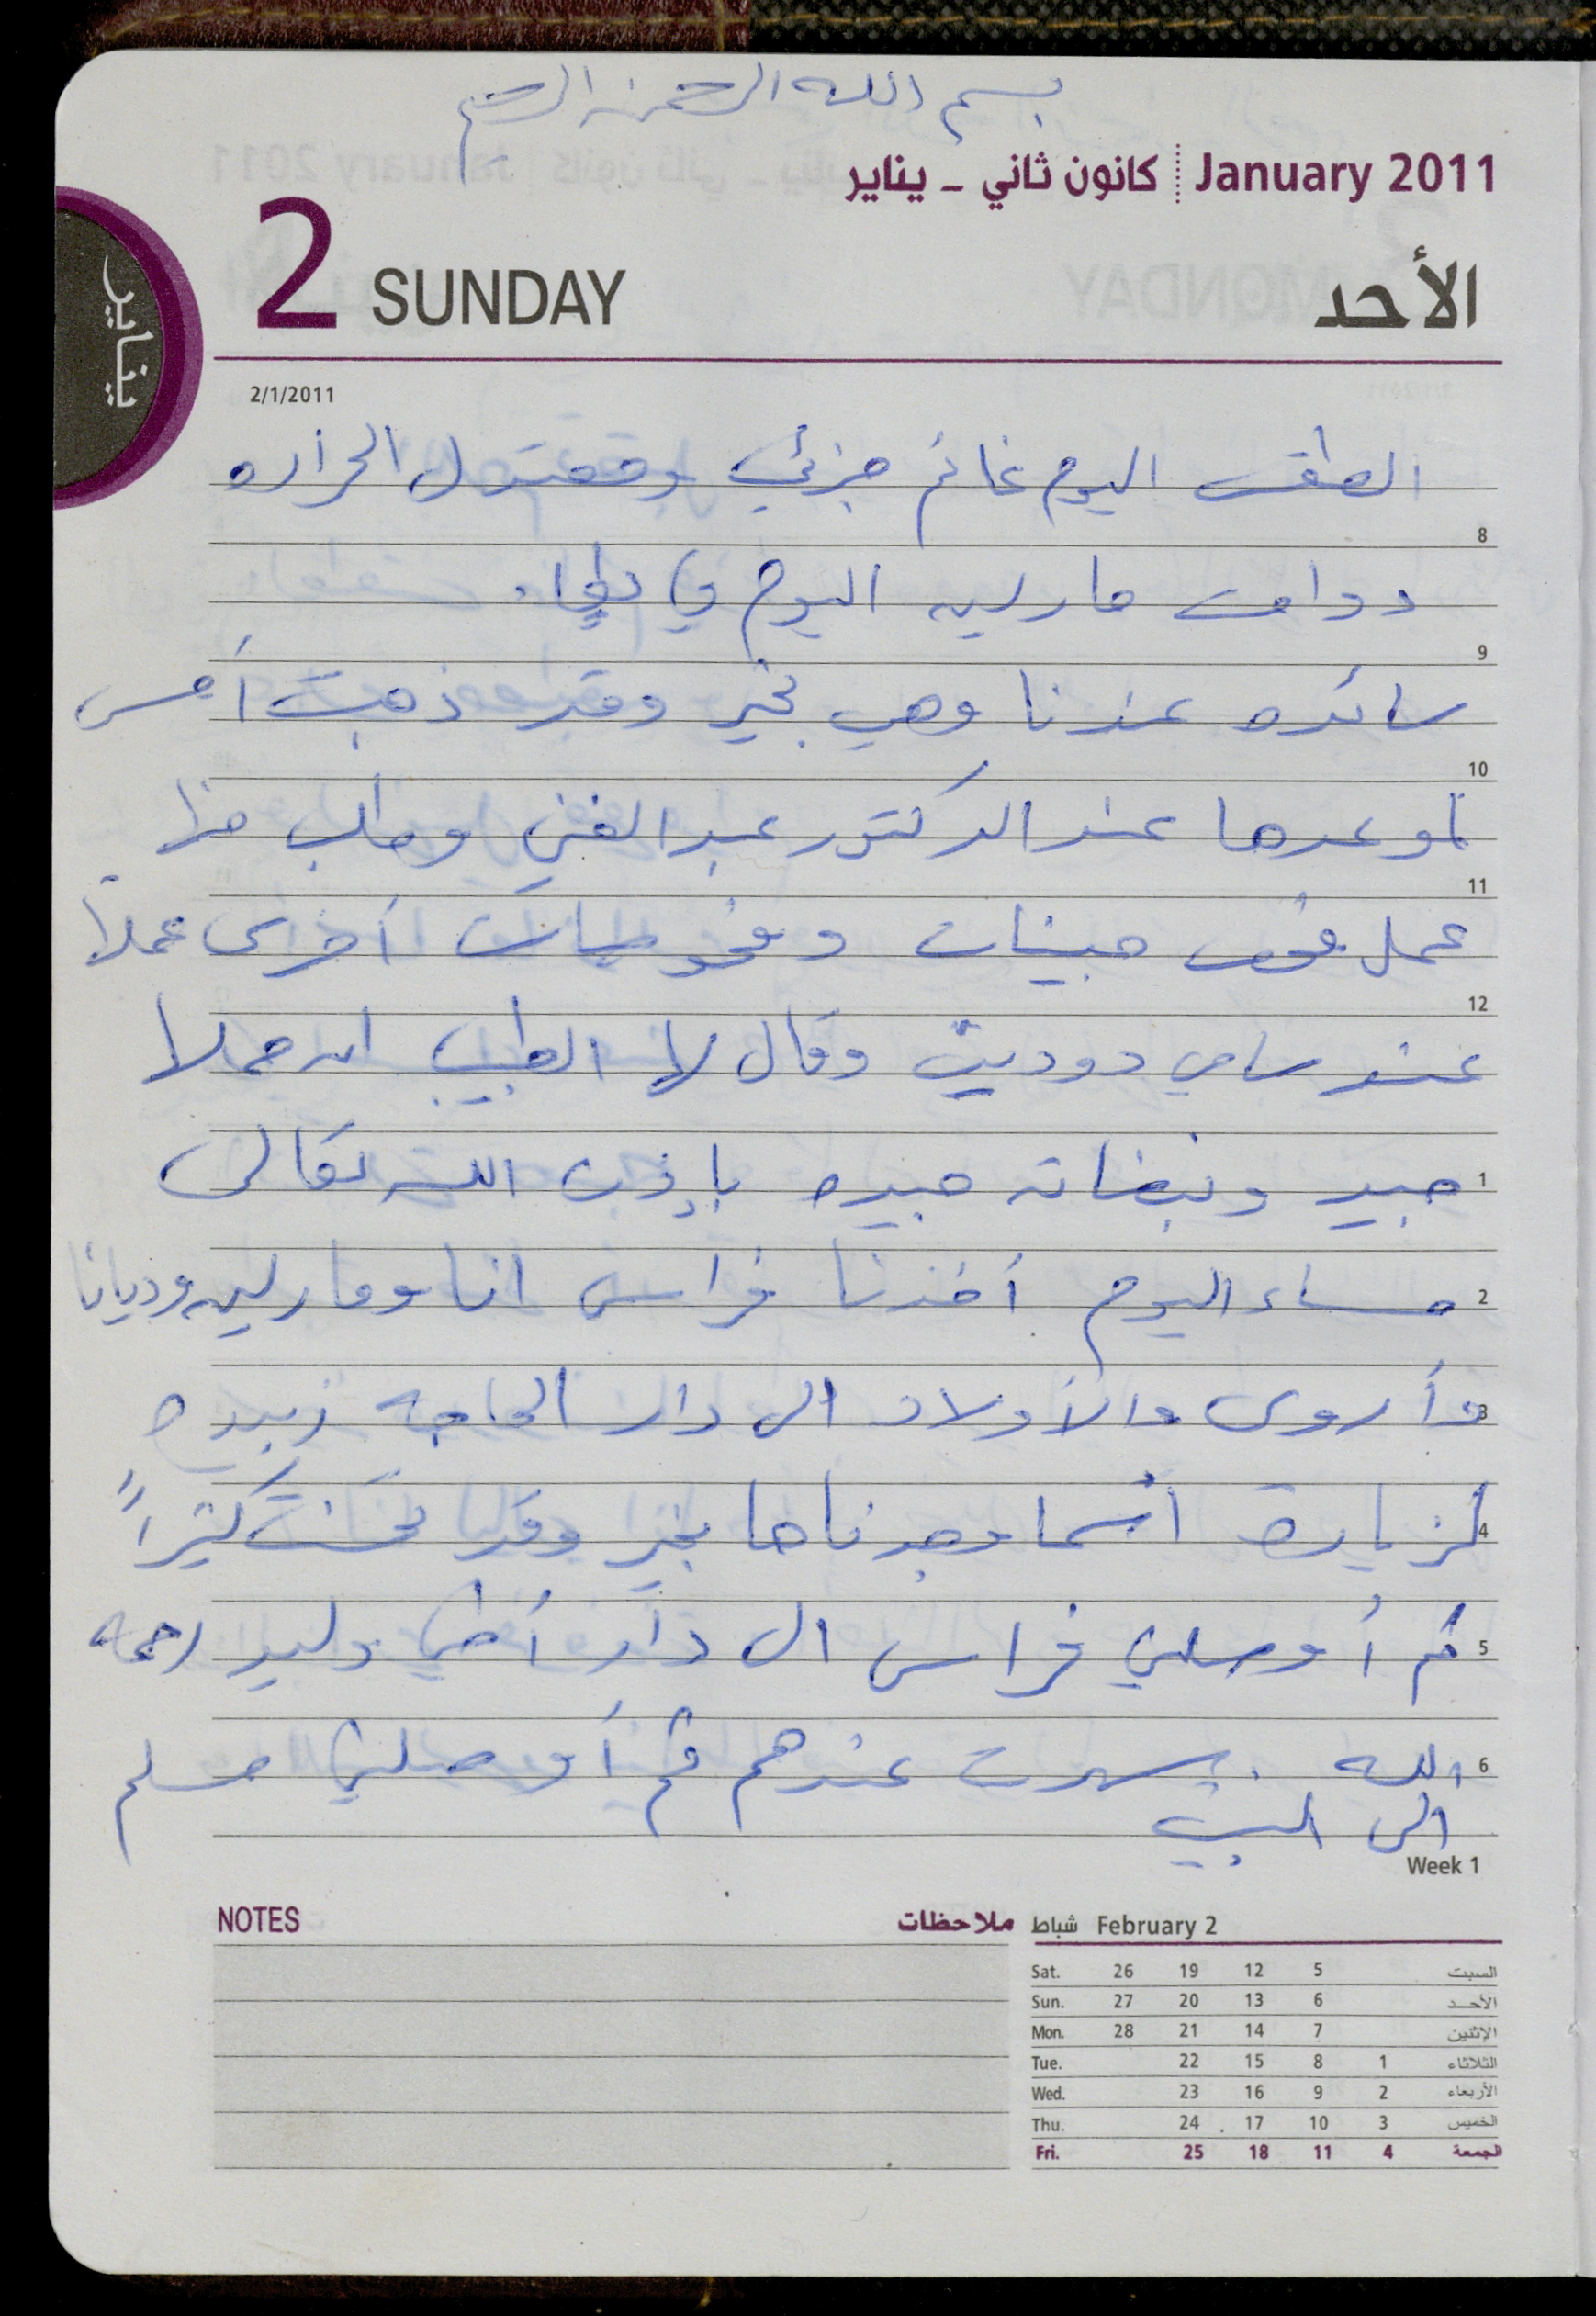 بسم الله الرحمن الرحيم
January 2011 كانون ثاني - يناير
2 SUNDAY الأحد
يناير
2/1/2011
الطقس اليوم غائم جزئي ومعتدل الحراره
8
دوامت مارلين اليوم في
9
سائده عندنا وهي بخير وقد ذهبت أمس
10
لموعدها عند الدكتور عبد الغني وطلب منها
11
عمل فحص جينات وفحوصات أخرى عملا
12
عند سامي دودين وقال لها الطبيب ان حملا
جيد ونبضاته جيده بإذن الله تعالى 1
مساء اليوم أخذنا فراس انا ومارلين وديانا 2
وأروى والأولاد الى دار الحاجه زبيده 3
لزيارة أسما وجدناها بخير وقد تحسنت كثيراً 4
ثم أوصلني فراس الى دار أخي وليد رحمه 5
الله. سهرت عندهم ثم أوصلني مسلم 6
الى البيت
Week 1
NOTES ملاحظات
شباط February 2
Sat. 26 19 12 5 السبت
Sun. 27 20 13 6 الأحد
Mon. 28 21 14 7 الإثنين
Tue. 22 15 8 1 الثلاثاء
Wed. 23 16 9 2 الأربعاء
Thu. 24 17 10 3 الخميس
Fri. 25 18 11 4 الجمعة